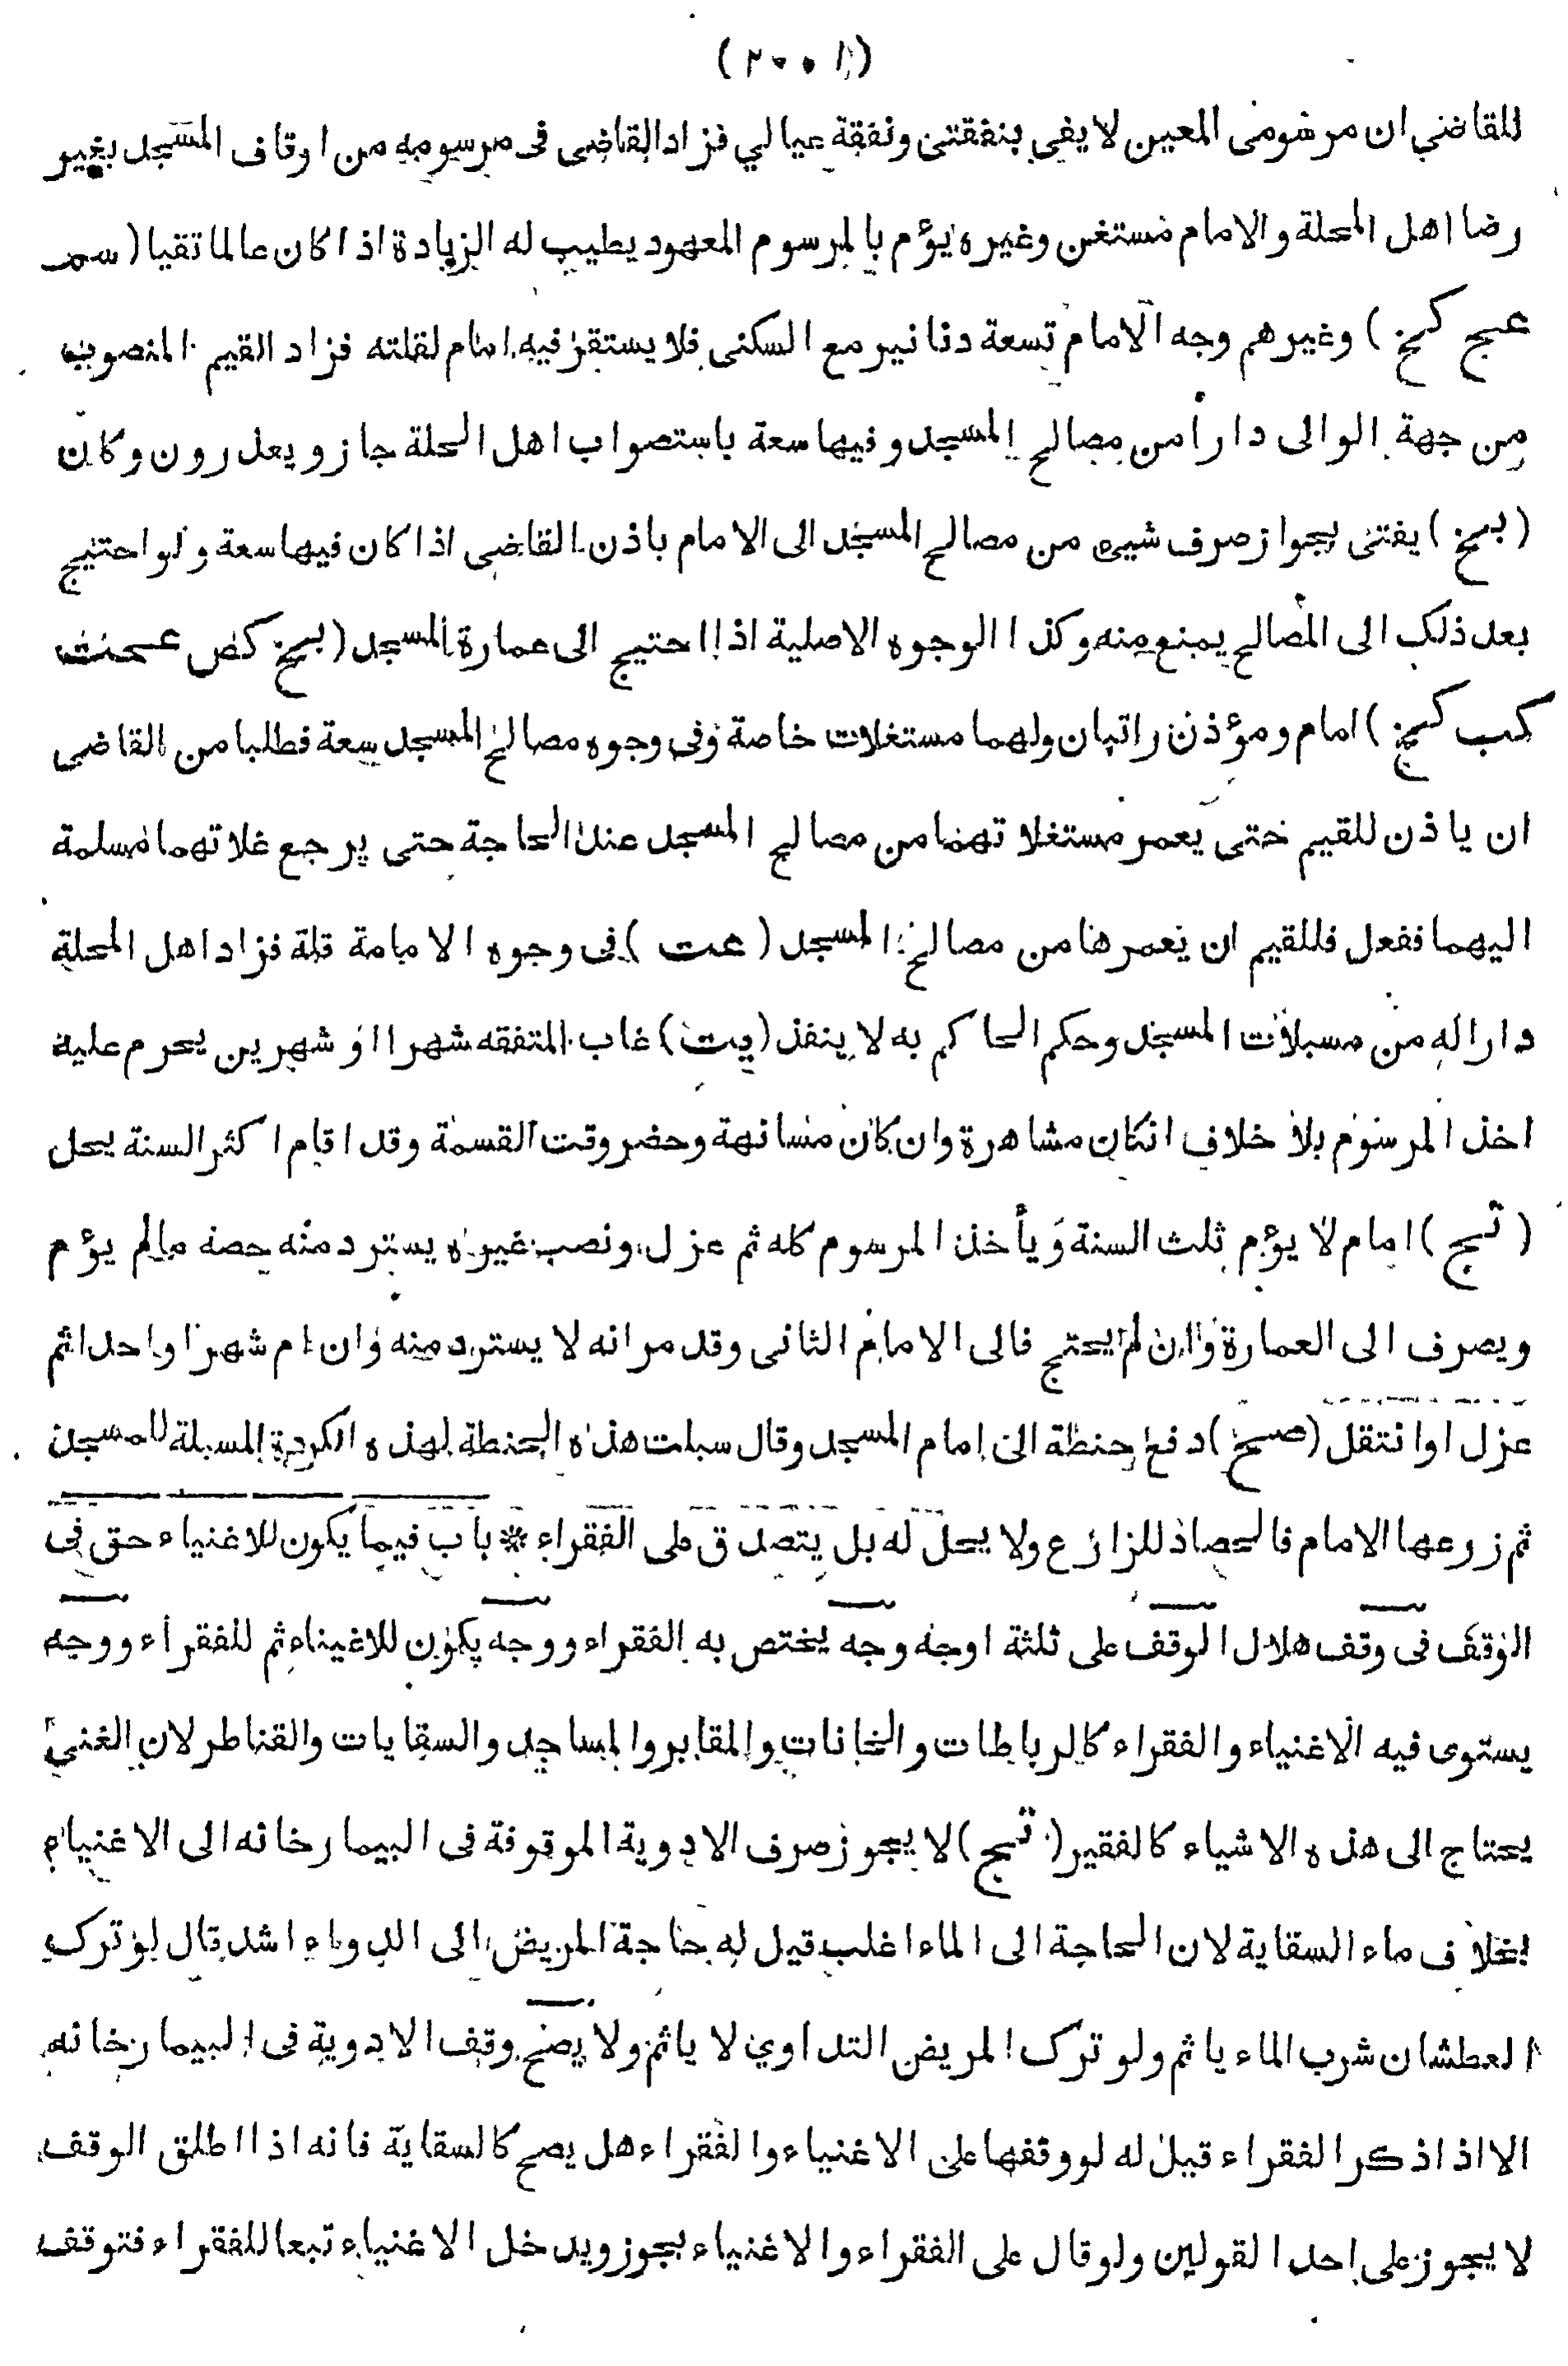 (٢٠٠١)
للقاضي ان مرسومى المعين لا يفى بنفقتى ونفقة عيالي فزاد القاضى فى مرسومه من اوقاف المسجد بغير
رضا اهل المحلة والامام مستغن وغيره يؤم بالمرسوم المعهود يطيب له الزيادة اذا كان عالما تقيا (سمـ
عج كخ) وغيرهم وجه الامام تسعة دنانير مع السكنى فلا يستقر فيه امام لقلته فزاد القيم المنصوب
من جهة الوالى دارا من مصالح المسجد وفيها سعة باستصواب اهل المحلة جاز ويعذرون وكان
(بخ) يفتى بجواز صرف شيء من مصالح المسجد الى الامام باذن القاضى اذا كان فيها سعة ولو احتيج
بعد ذلك الى المصالح يمنع منه وكذا الوجوه الاصلية اذا احتيج الى عمارة المسجد (بخ كص عحت
كب كخ) امام ومؤذن راتبان ولهما مستغلات خاصة وفى وجوه مصالح المسجد سعة فطلبا من القاضى
ان ياذن للقيم حتى يعمر مستغلاتهما من مصالح المسجد عند الحاجة حتى يرجع غلاتهما مسلمة
اليهما ففعل فللقيم ان يعمرها من مصالح المسجد (عت) فى وجوه الامامة قلة فزاد اهل المحلة
دارا له من مسبلات المسجد وحكم الحاكم به لا ينفذ (يت) غاب المتفقه شهرا او شهرين يحرم عليه
اخذ المرسوم بلا خلاف انكان مشاهرة وان كان مسانهة وحضر وقت القسمة وقد اقام اكثر السنة يحل
(تج) امام لا يؤم ثلث السنة ويأخذ المرسوم كله ثم عزل ونصب غيره يسترد منه حصة مالم يؤم
ويصرف الى العمارة وان لم يحتج فالى الامام الثانى وقد مر انه لا يسترد منه وان ام شهرا واحدا ثم
عزل اوانتقل (صبح) دفع حنطة الى امام المسجد وقال سبلت هذه الحنطة لهذه الكردة المسبلة للمسجد
ثم زرعها الامام فالحصاد للزارع ولا يحل له بل يتصدق على الفقراء * باب فيما يكون للاغنياء حق فى
الوقف فى وقف هلال الوقف على ثلثة اوجه وجه يختص به الفقراء ووجه يكون للاغيناء ثم للفقراء ووجه
يستوى فيه الاغنياء والفقراء كالرباطات والخانات والمقابر والمساجد والسقايات والقناطر لان الغنى
يحتاج الى هذه الاشياء كالفقير (تج) لا يجوز صرف الادوية الموقوفة فى البيمارخانه الى الاغنياء
بخلاف ماء السقاية لان الحاجة الى الماء اغلب قيل له حاجة المريض الى الدواء اشد قال لو ترك
العطشان شرب الماء ياثم ولو ترك المريض التداوي لا ياثم ولا يصح وقف الادوية فى البيمارخانه
الا اذا ذكر الفقراء قيل له لو وقفها على الاغنياء والفقراء هل يصح كالسقاية فانه اذا اطلق الوقف
لا يجوز على احد القولين ولو قال على الفقراء والاغنياء يجوز ويدخل الاغنياء تبعا للفقراء فتوقف